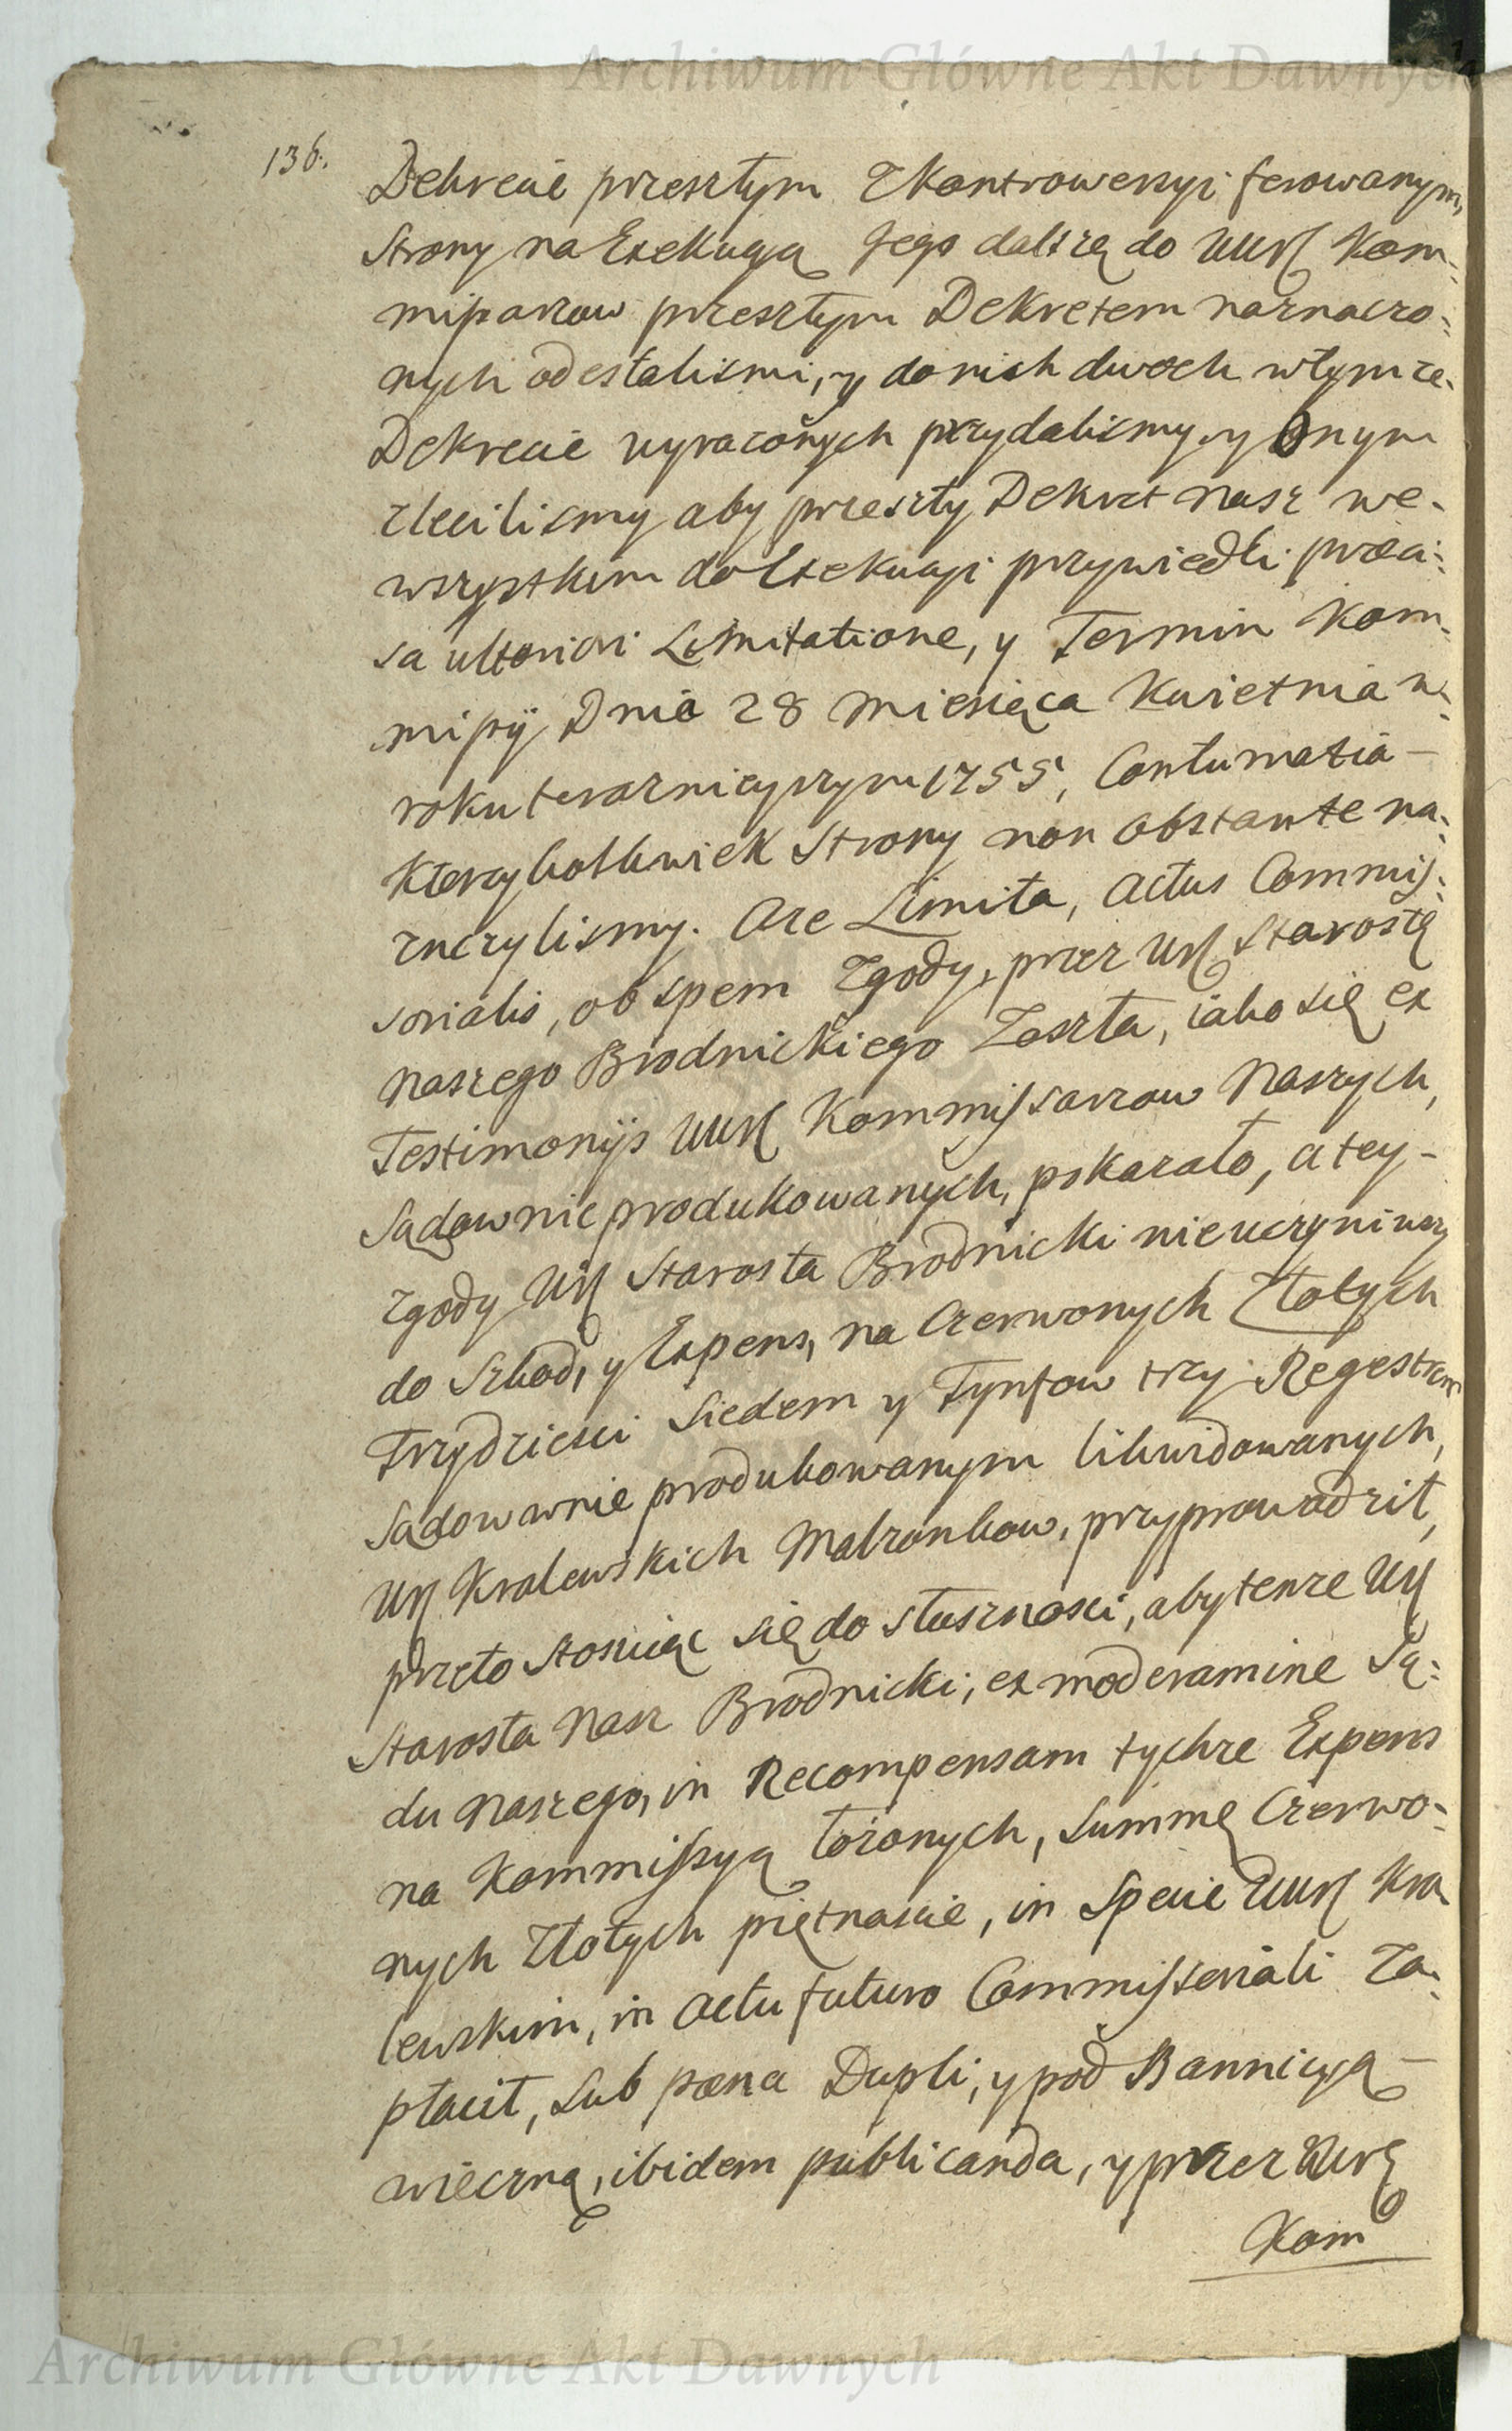 Archiwum Główne Akt Dawnych
136.
Dekrecie przeszłym z kontrowersyi ferowanym,
Strony na Exekucyą Jego dalszą do UUr Kom-
missarzow przeszłym Dekretem naznaczo-
nych odesłaliśmi, y do nich dwoch w tymże
Dekrecie wyrażonych przydaliśmy, y Onym
zleciliśmy aby przeszły Dekret nasz we-
wszystkim do Exekucyi przywiedli præci-
sa ulteriori Limitatione, y Termin Kom-
missyi Dnia 28 Miesiąca Kwietnia w
roku teraznieyszym 1755, Contumatia
ktoreykolwiek Strony non obstante na-
znczyliśmy. Aże Limita, Actus Commis-
sorialis, ob spem Zgody, przez Ur Starostę
naszego Brodnickiego Zaszła, iako się ex
Testimoniis UUr Kommissarzow Naszych,
Sądownie produkowanych, pokazało, a tey-
zgody Ur Starosta Brodnicki nieuczyniwszy
do Szkod, y Expens, na Czerwonych Złotych
Trzydziesci Siedem y Tynfow trzy Regestrem
Sądowwnie produkowanym likwidowanych,
Ur Kralewskich Małżonkow, przyprowadził,
przeto stosuiąc się do słuszności, aby tenże Ur
Starosta Nasz Brodnicki, ex moderamine Są-
du Naszego, in Recompensam tychże Expens
na Kommissyą łożonych, Summę Czerwo-
nych Złotych piętnaście, in Specie UUr Kra
lewskim, in Actu futuro Commissoriali Za-
płacił, Sub pæna Dupli, y pod Bannicyą
wieczną, ibidem publicanda, y przez UUr
Kom
Archiwum Główne Akt Dawnych